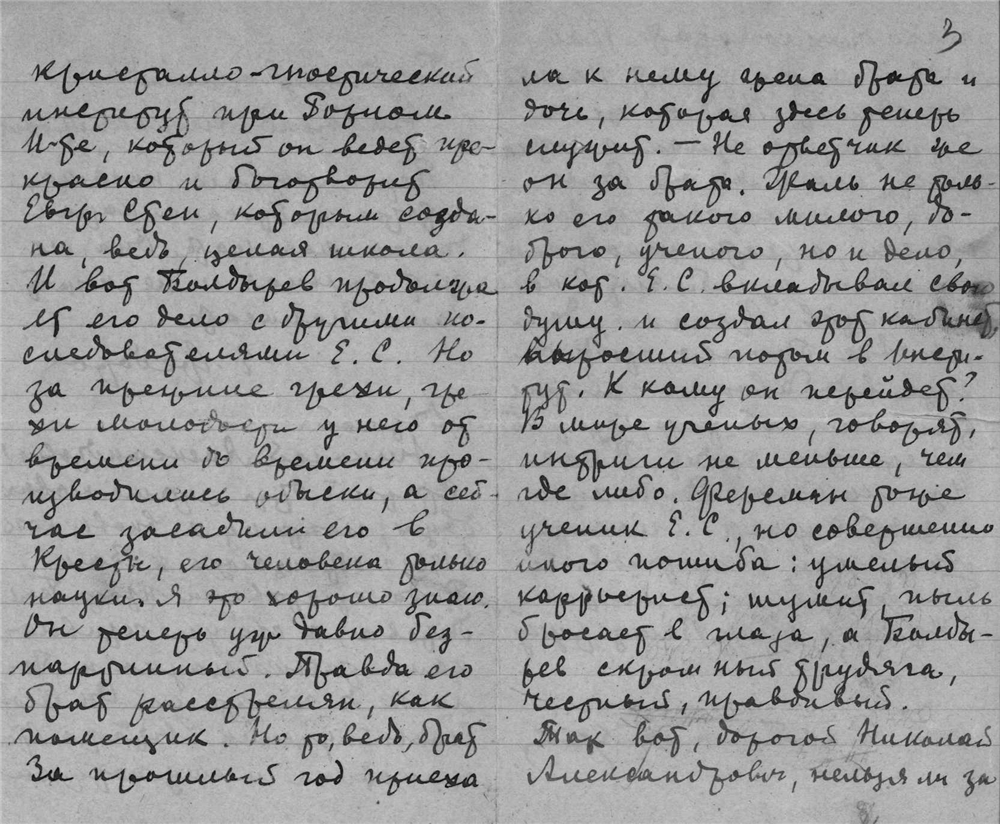 кристалло-гностический
институт при Горном
И-те, который он ведет пре-
красно и боготворит
Евгр. Степ, которым созда-
на, ведь, целая школа.
И вот Болдырев продолжа
ет его дело с другими по-
следователями Е. С. Но
за прежние грехи, гре-
хи молодости у него от
времени до времени про-
изводились обыски, а сей-
час засадили его в
Кресты, его человека только
науки. Я это хорошо знаю.
Он теперь уж давно без-
партийный. Правда его
брат расстрелян, как
помещик. Но то, ведь, брат
За прошлый год приеха
3
ла к нему жена брата и
дочь, которая здесь теперь
служит. — Не ответчик же
он за брата. Жаль не толь-
ко его такого милого, до-
брого, ученого, но и дело,
в кот. Е. С. вкладывал свою
душу. и создал этот кабинет
выросший потом в Инсти-
тут. К кому он перейдет?
В мире ученых, говорят,
интриги не меньше, чем
где либо. Ферсман тоже
ученик Е. С., но совершенно
иного пошиба: умелый
карьерист; шумит, пыль
бросает в глаза, а Болды-
рев скромный трудяга,
честный, правдивый.
Так вот, дорогой Николай
Александрович, нельзя ли за